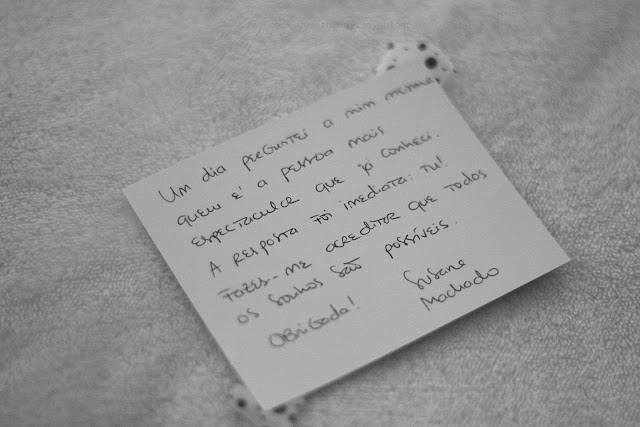 Um dia perguntei a mim mesma,
quem é a pessoa mais
espectacular que já conheci.
A resposta foi imediata: tu!
Fazes-me acreditar que todos
os sonhos são possíveis.
Obrigada!
Susana
Machado